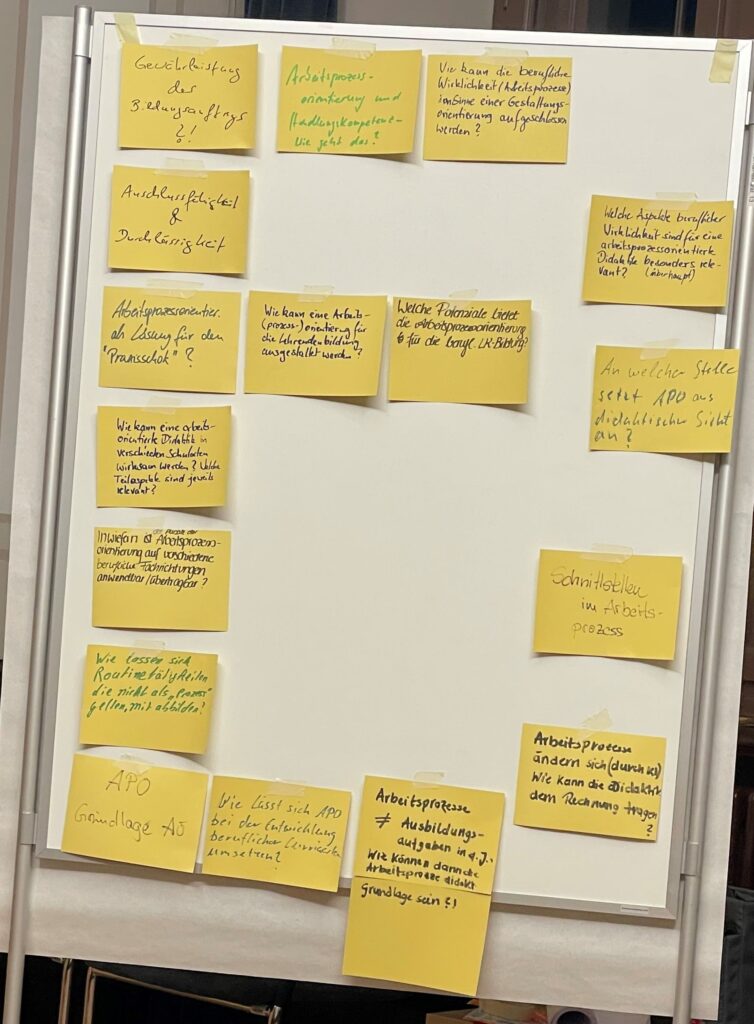 Gewährleistung
des
Bildungsauftrags
?!
Arbeitsprozess-
orientierung und
Handlungskompetenz -
Wie geht das?
Wie kann die berufliche
Wirklichkeit (Arbeitsprozesse)
im Sinne einer Gestaltungs-
orientierung aufgeschlossen
werden?
Anschlussfähigkeit
&
Durchlässigkeit
Welche Aspekte beruflicher
Wirklichkeit sind für eine
arbeitsprozessorientierte
Didaktik besonders rele-
vant? (überhaupt)
Arbeitsprozessorientier.
als Lösung für den
"Praxisschok"?
Wie kann eine Arbeits-
(prozess-)orientierung für
die Lehrendenbildung
ausgestaltet werden?
Welche Potenziale bietet
die Arbeitsprozessorientierung
für die berufl. LK-Bildung?
An welcher Stelle
setzt APO aus
didaktischer Sicht
an?
Wie kann eine arbeits-
orientierte Didaktik in
verschieden Schularten
wirksam werden? Welche
Teilaspekte sind jeweils
relevant?
Inwiefern ist Arbeitsprozess-
orientierung auf verschiedene
berufliche Fachrichtungen
anwendbar/übertragbar?
Schnittstellen
im Arbeits-
prozess
Wie lassen sich
Routinetätigkeiten
die nicht als "Prozess"
gelten, mit abbilden?
Arbeitsprozesse
ändern sich (durch KI)
Wie kann die Didaktik
dem Rechnung tragen
?
APO
Grundlage AO
Wie lässt sich APO
bei der Entwicklung
beruflicher Curricula
umsetzen?
Arbeitsprozesse
≠ Ausbildungs-
aufgaben in
Wie können dann die
Arbeitsprozesse didakt.
Grundlage sein?!